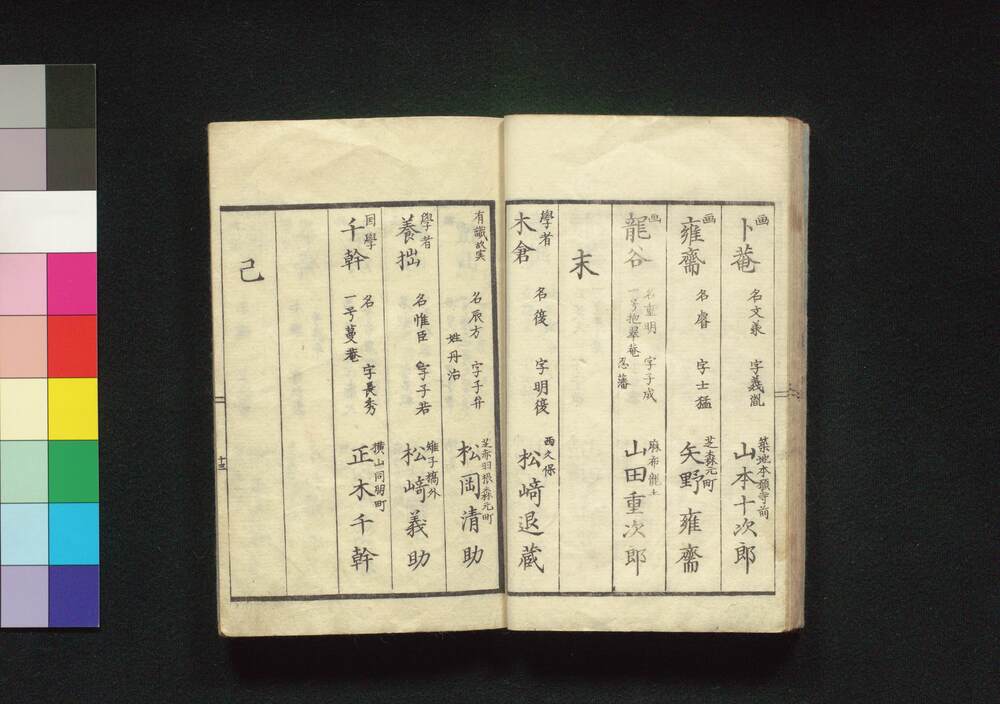 画
卜菴 名文豪 字義胤
築地本願寺前
山本十次郎
画
雍齋 名睿 字士猛
芝森元町
矢野雍齋
画
龍谷 名重明 字子成
一号抱翠菴 忍藩
麻布龍土
山田重次郎
末
學者
木倉 名復 字明復
西久保
松﨑退蔵
有識故実
名辰方 字子弁
姓丹治
芝赤羽根森元町
松岡清助
學者
養拙 名惟臣 字子若
雉子橋外
松﨑義助
国學
千幹 名 字長秀
一号蔓菴
横山同朋町
正木千幹
己
十三